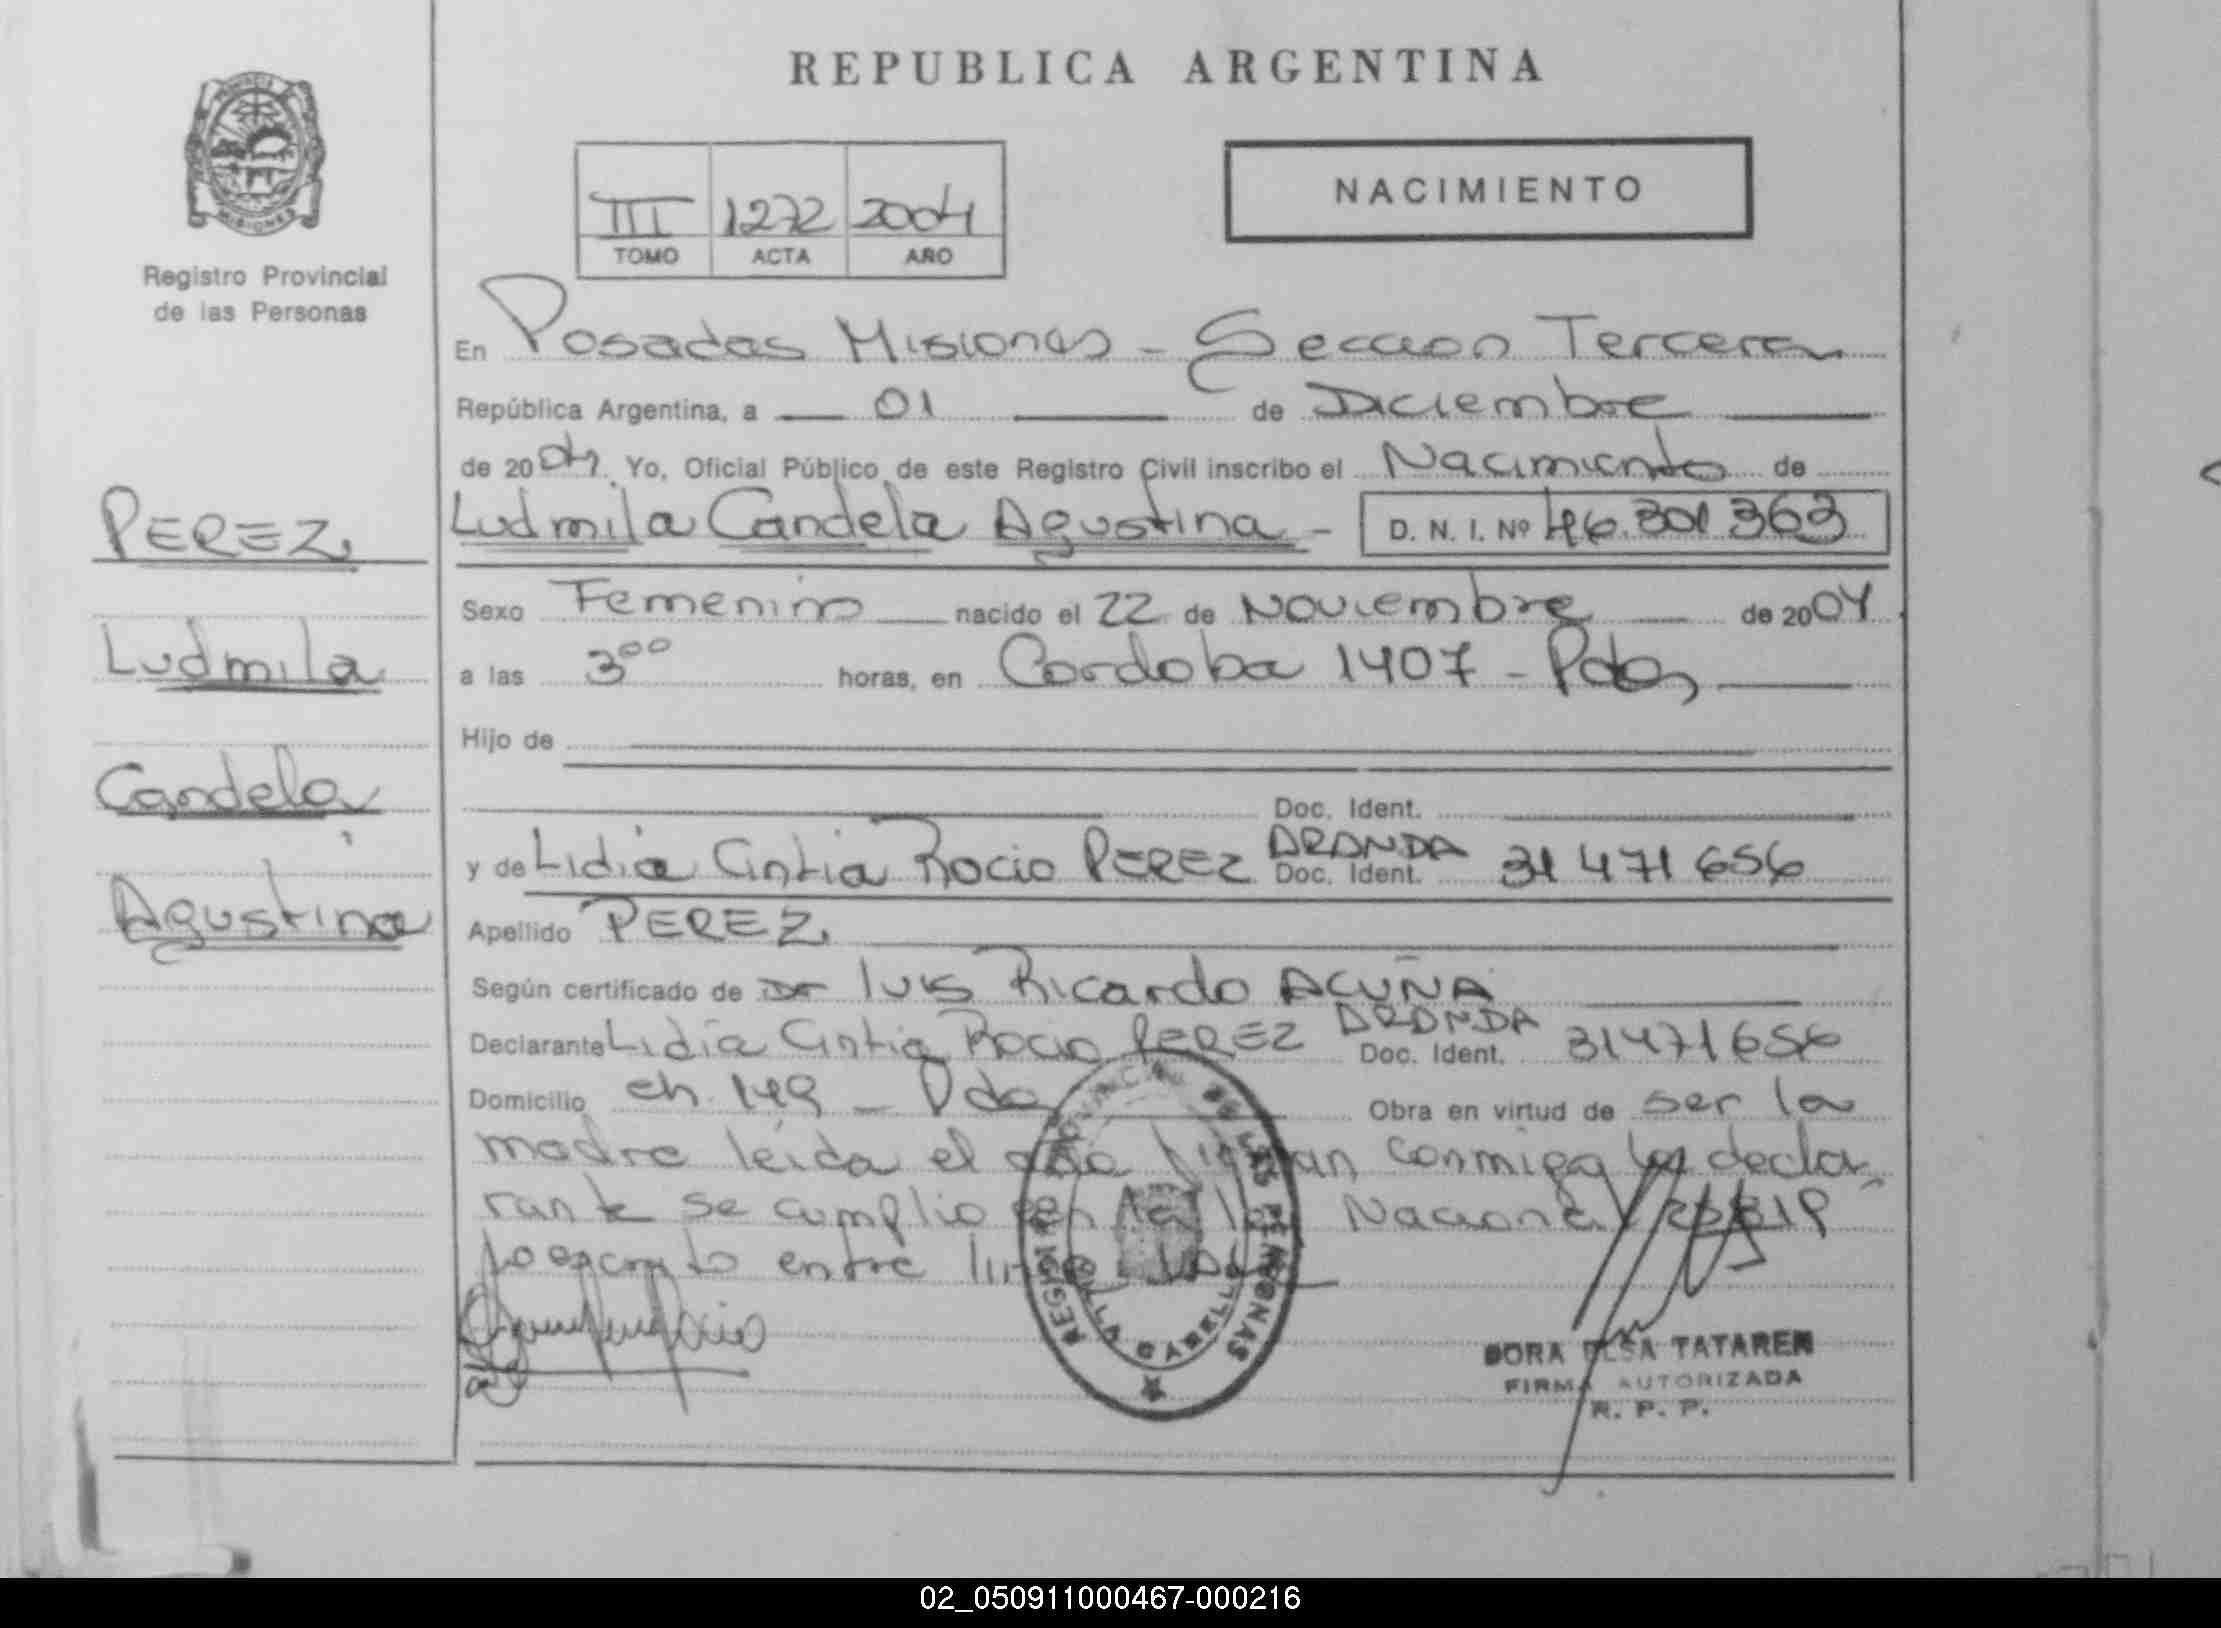 REPUBLICA ARGENTINA
PROVINCIA
MISIONES
Registro Provincial
de las Personas
III 1272 2004
TOMO ACTA AÑO
NACIMIENTO
En Posadas Misiones - Seccion Tercera
República Argentina, a 01 de Diciembre
de 2004. Yo, Oficial Público de este Registro Civil inscribo el Nacimiento de
Ludmila Candela Agustina - D. N. I. Nº 46.301.363
PEREZ
Sexo Femenino nacido el 22 de Noviembre de 2004
Ludmila
a las 3⁰⁰ horas, en Cordoba 1407 - Pdas
Hijo de
Candela
Doc. Ident.
y de Lidia Cintia Rocio PEREZ ARANDA Doc. Ident. 31 471 656
Agustina
Apellido PEREZ
Según certificado de Dr Luis Ricardo ACUÑA
Declarante Lidia Cintia Rocio PEREZ ARANDA Doc. Ident. 31471656
Domicilio ch. 149 - Pdas Obra en virtud de ser la
madre leida el acta firman conmigo la decla
rante se cumplio con la ley Nacional
entre
REGISTRO PROVINCIAL DE LAS PERSONAS
DORA ELSA TATAREN
FIRMA AUTORIZADA
R. P. P.
02_050911000467-000216